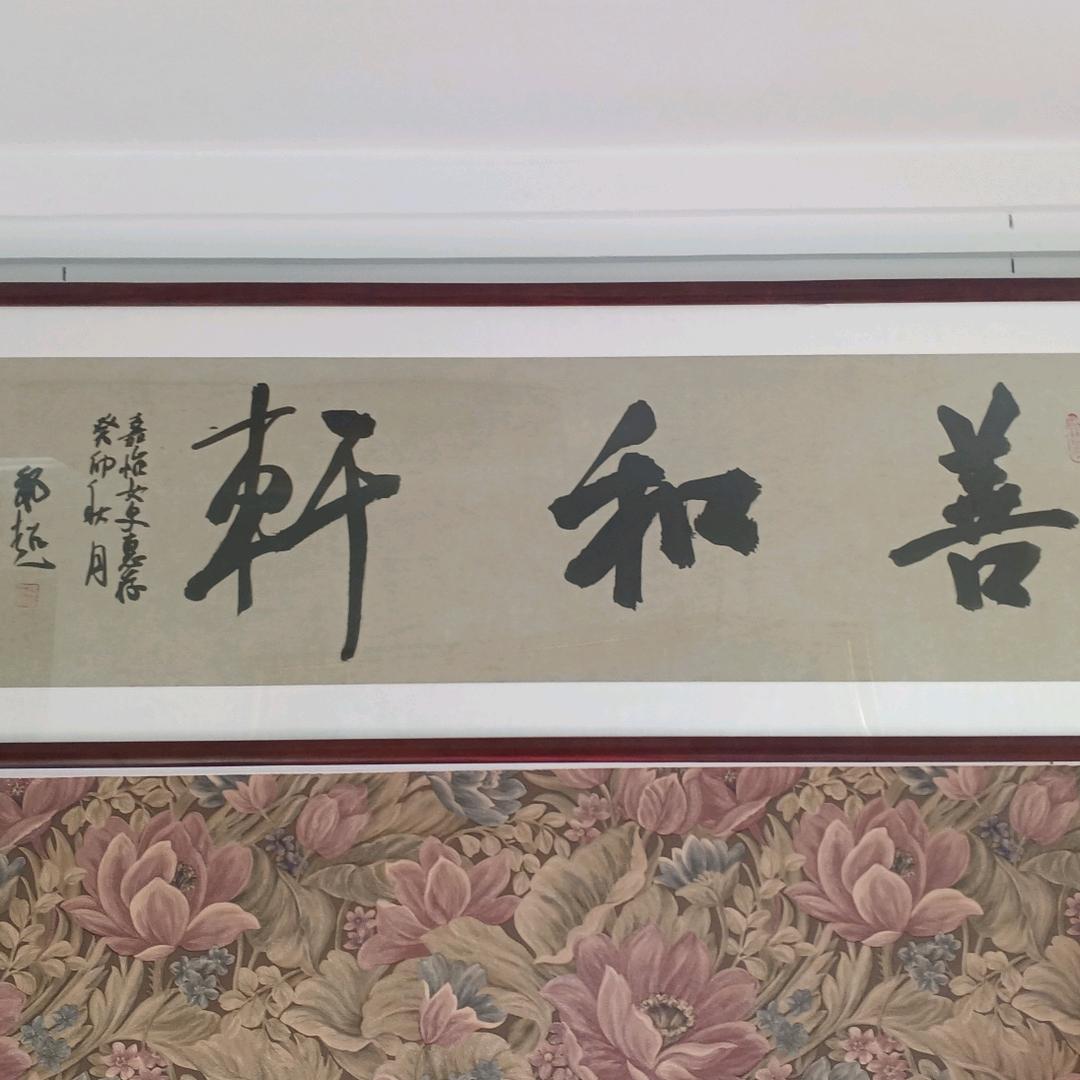 善和軒
嘉怡女史惠存
癸卯秋月